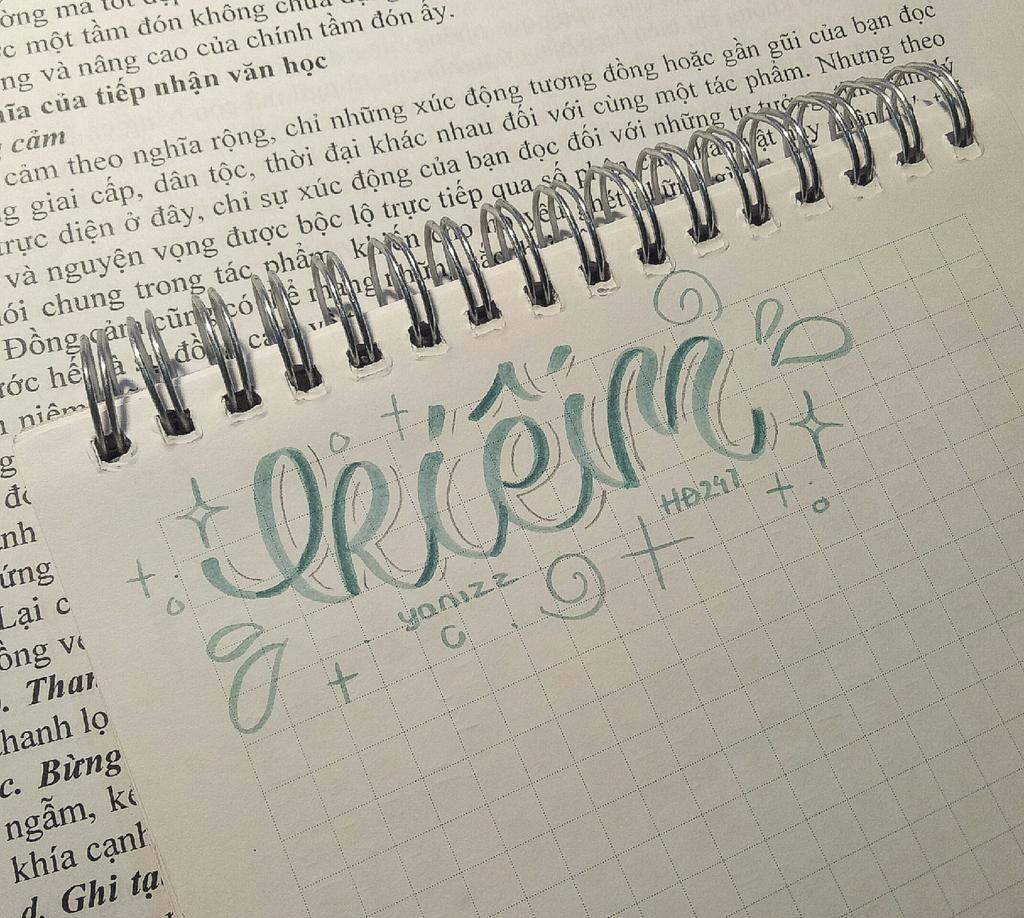 một tầm đón không
ng và nâng cao của chính tầm đón ấy.
ĩa của tiếp nhận văn học
cảm
cảm theo nghĩa rộng, chỉ những xúc động tương đồng hoặc gần gũi của bạn đọc
g giai cấp, dân tộc, thời đại khác nhau đối với cùng một tác phẩm. Nhưng theo
trực diện ở đây, chỉ sự xúc động của bạn đọc đối với những tư tưởng
và nguyện vọng được bộc lộ trực tiếp qua số
ói chung trong tác phẩm
Đồng cảm cũng có
niêm
kiếm
HĐ247
yanizz
ứng
Lại c
ồng
hanh lọ
c. Bừng
ngẫm,
khía cạnh
d. Ghi tạ